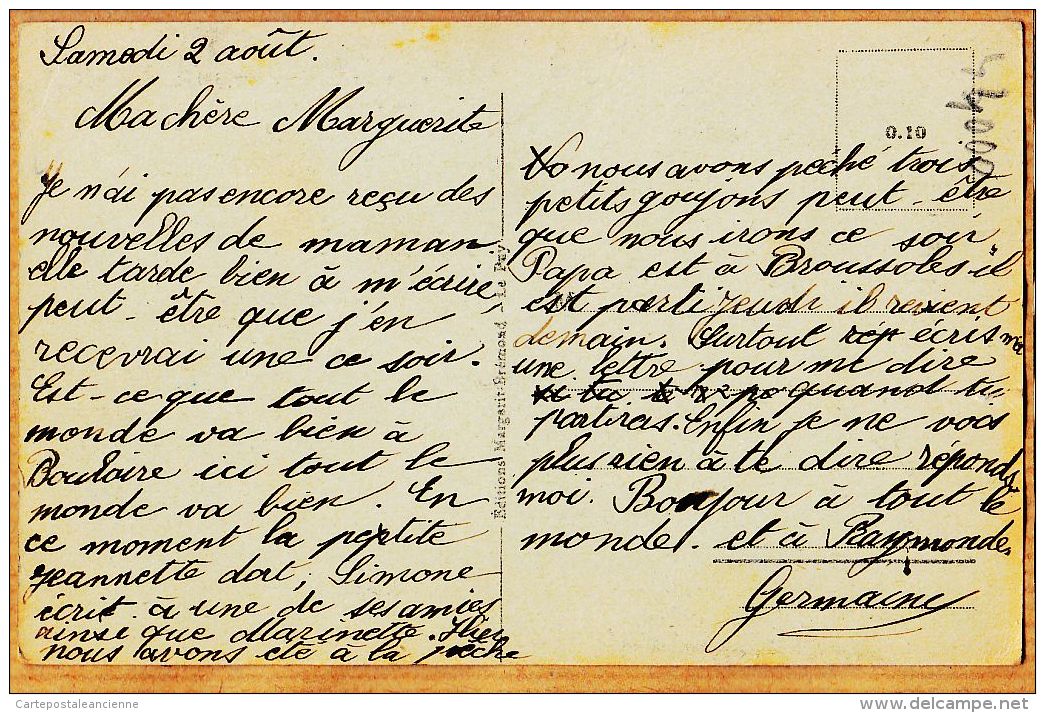 Samedi 2 août.
Ma chère Marguerite
Je n'ai pas encore reçu des
nouvelles de maman
elle tarde bien à m'écrire,
peut-être que j'en
recevrai une ce soir.
Est-ce que tout le
monde va bien à
Bouloire ici tout le
monde va bien. En
ce moment la petite
Jeannette dort, Simone
écrit à une de ses amies
ainsi que Marinette. Hier
nous avons été à la pêche
Editions Margerit-Brémond, Le Puy
0.10
nous avons pêché trois
petits goujons peut-être
que nous irons ce soir.
Papa est à Broussoles il
est parti jeudi il revient
demain. Surtout écris moi
une lettre pour me dire
quand tu
partiras. Enfin je ne vois
plus rien à te dire réponds
moi. Bonjour à tout le
monde. et à Raymonde.
Germaine
Cartepostaleancienne
delcampe.net